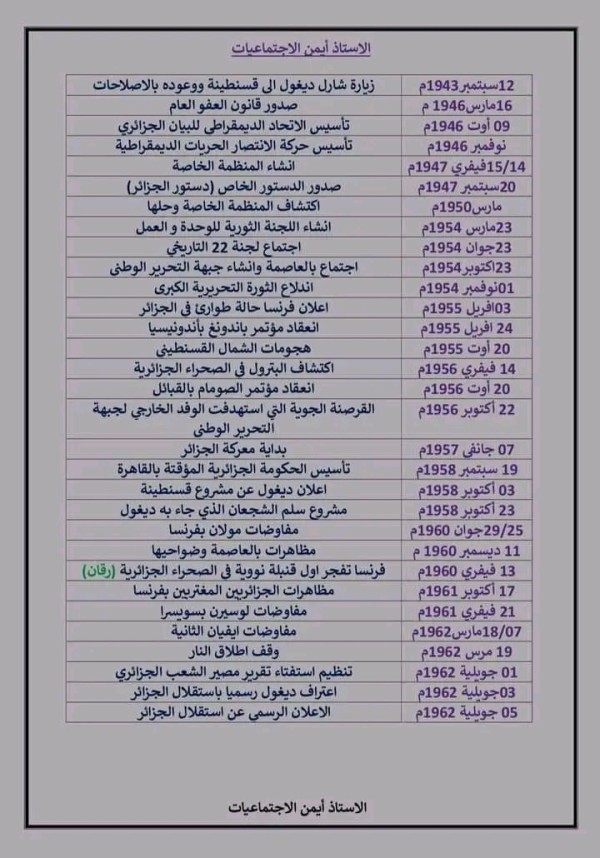 الاستاذ أيمن الاجتماعيات
12سبتمبر1943م زيارة شارل ديغول الى قسنطينة ووعوده بالاصلاحات
16مارس1946 م صدور قانون العفو العام
09 أوت 1946م تأسيس الاتحاد الديمقراطي للبيان الجزائري
نوفمبر 1946م تأسيس حركة الانتصار الحريات الديمقراطية
15/14فيفري 1947م انشاء المنظمة الخاصة
20سبتمبر 1947م صدور الدستور الخاص (دستور الجزائر)
مارس1950م اكتشاف المنظمة الخاصة وحلها
23مارس 1954م انشاء اللجنة الثورية للوحدة و العمل
23جوان 1954م اجتماع لجنة 22 التاريخي
23اكتوبر1954م اجتماع بالعاصمة وانشاء جبهة التحرير الوطني
01نوفمبر 1954م اندلاع الثورة التحريرية الكبرى
03افريل 1955م اعلان فرنسا حالة طوارئ في الجزائر
24 افريل 1955م انعقاد مؤتمر باندونغ بأندونيسيا
20 أوت 1955م هجومات الشمال القسنطيني
14 فيفري 1956م اكتشاف البترول في الصحراء الجزائرية
20 أوت 1956م انعقاد مؤتمر الصومام بالقبائل
22 أكتوبر 1956م القرصنة الجوية التي استهدفت الوفد الخارجي لجبهة
التحرير الوطني
07 جانفي 1957م بداية معركة الجزائر
19 سبتمبر 1958م تأسيس الحكومة الجزائرية المؤقتة بالقاهرة
03 أكتوبر 1958م اعلان ديغول عن مشروع قسنطينة
23 أكتوبر 1958م مشروع سلم الشجعان الذي جاء به ديغول
29/25جوان 1960م مفاوضات مولان بفرنسا
11 ديسمبر 1960 م مظاهرات بالعاصمة وضواحيها
13 فيفري 1960م فرنسا تفجر اول قنبلة نووية في الصحراء الجزائرية (رقان)
17 أكتوبر 1961م مظاهرات الجزائريين المغتربين بفرنسا
21 فيفري 1961م مفاوضات لوسيرن بسويسرا
18/07مارس1962م مفاوضات ايفيان الثانية
19 مرس 1962م وقف اطلاق النار
01 جويلية 1962م تنظيم استفتاء تقرير مصير الشعب الجزائري
03جويلية 1962م اعتراف ديغول رسميا باستقلال الجزائر
05 جويلية 1962م الاعلان الرسمي عن استقلال الجزائر
الاستاذ أيمن الاجتماعيات